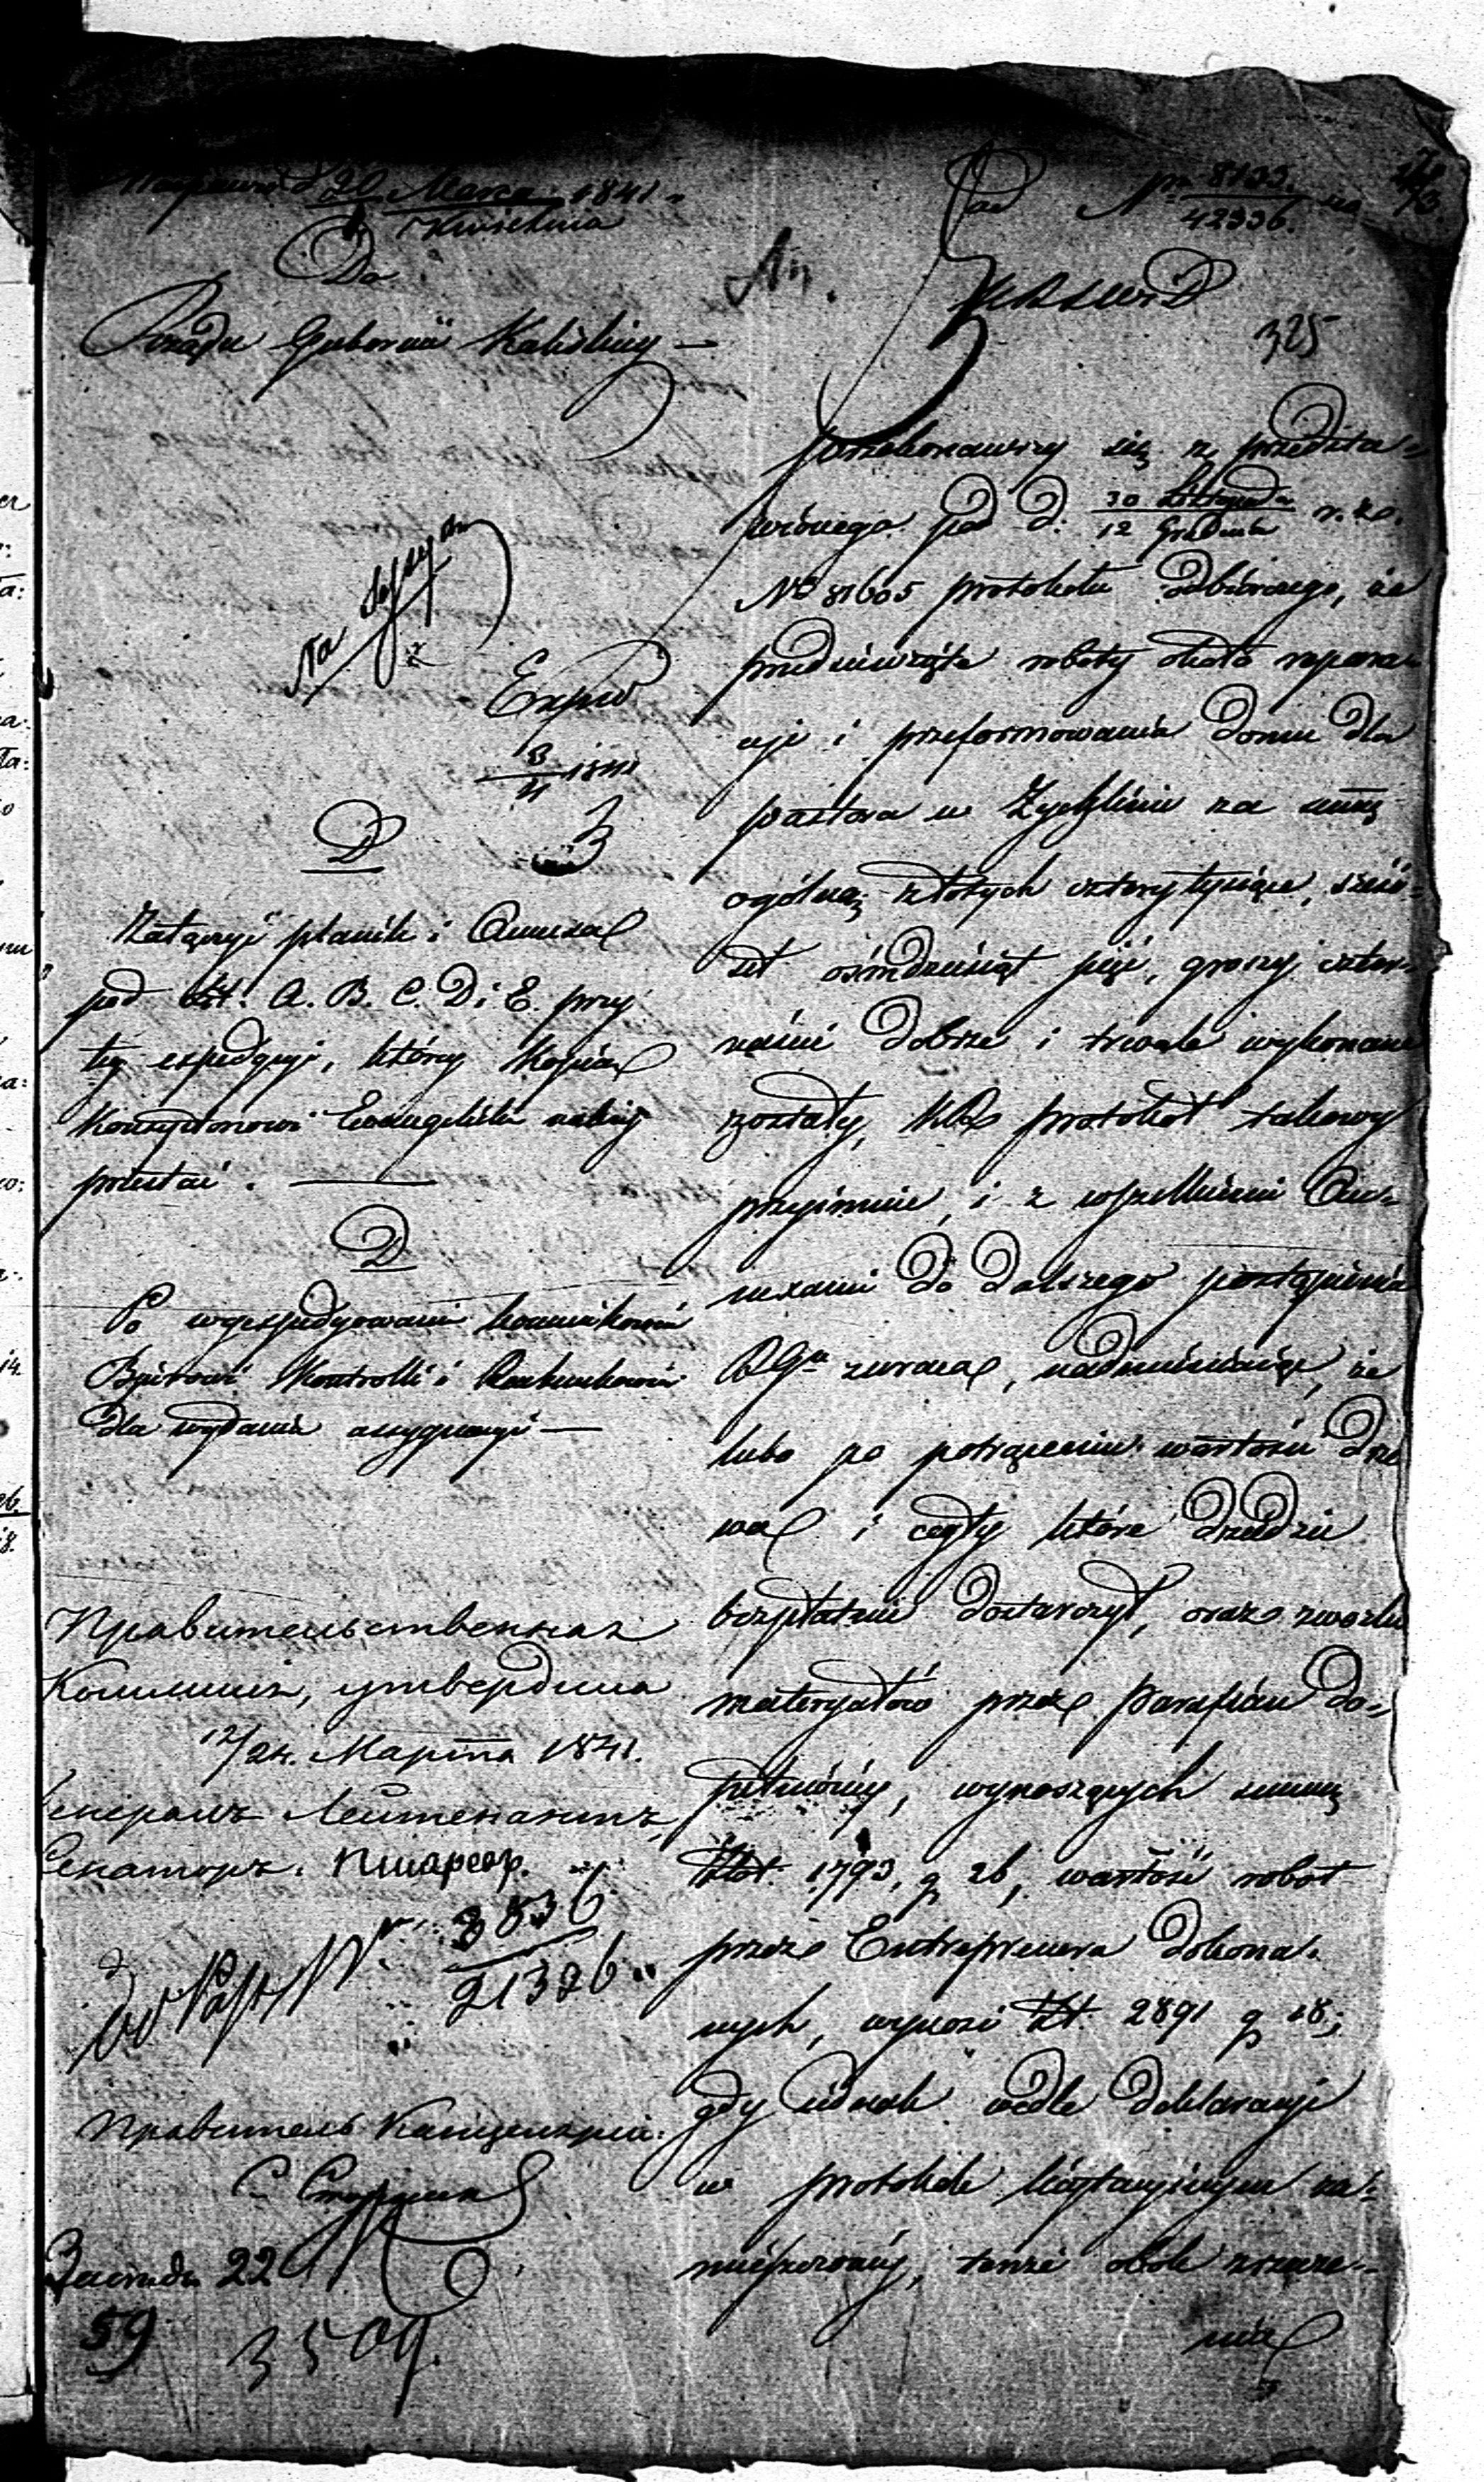 20 Marca 1841
Kwietnia
Do
Rządu Gubernii Kaliskiey —
Ad N. 8133.
42336.
325
Na Sessyą
Exped
3/4 1841
D
Załączyć planik i Annexa
pod lit. A. B. C. D i E. przy
tey expedycyi, którey kopią
Konsystorowi Ewangelicko
przesłać. —
D
Po wyexpedyowaniu kommunikować
Biurowi Kontrolli i Rachunkowości
dla wydania assygnacyi —
Правительственная
Коммиссія, утвердила
12/24. Марта 1841.
Генералъ Лейтенантъ,
Сенаторъ:
N 3836
21326
Правитель Канцеляріи:
22
59
3509.
przekonawszy się z przedsta-
wionego pod d. 30 Listopada / 12 Grudnia r. z.
No 81605 protokółu odbiorczego, że
przedsiewzięte roboty około repera-
cyi i przeformowania domu dla
pastora w Żychlinie za summę
ogólną złotych cztery tysiące, sześć-
set ośmdziesiąt pięć, groszy czter-
naście dobrze i trwale wykonane
zostały, protokół takowy
przyimuie, i z wszelkiemi An-
nexami do dalszego postąpienia
RGu zwraca, nadmieniaiąc, że
lubo po potrąceniu wartości drze
wa i cegły które dziedzic
bezpłatnie dostarczył, oraz zwózki
materyałów przez Parafian do-
pełnioney, wynoszących summę
Złot. 1793, g 26, wartość robot
przez Entreprenera dokona-
nych, wynosi Zł. 2891 g 18;
gdy iednak wedle deklaracyi
w protokóle licytacyinym za-
mieszczoney, tenże obok
nia